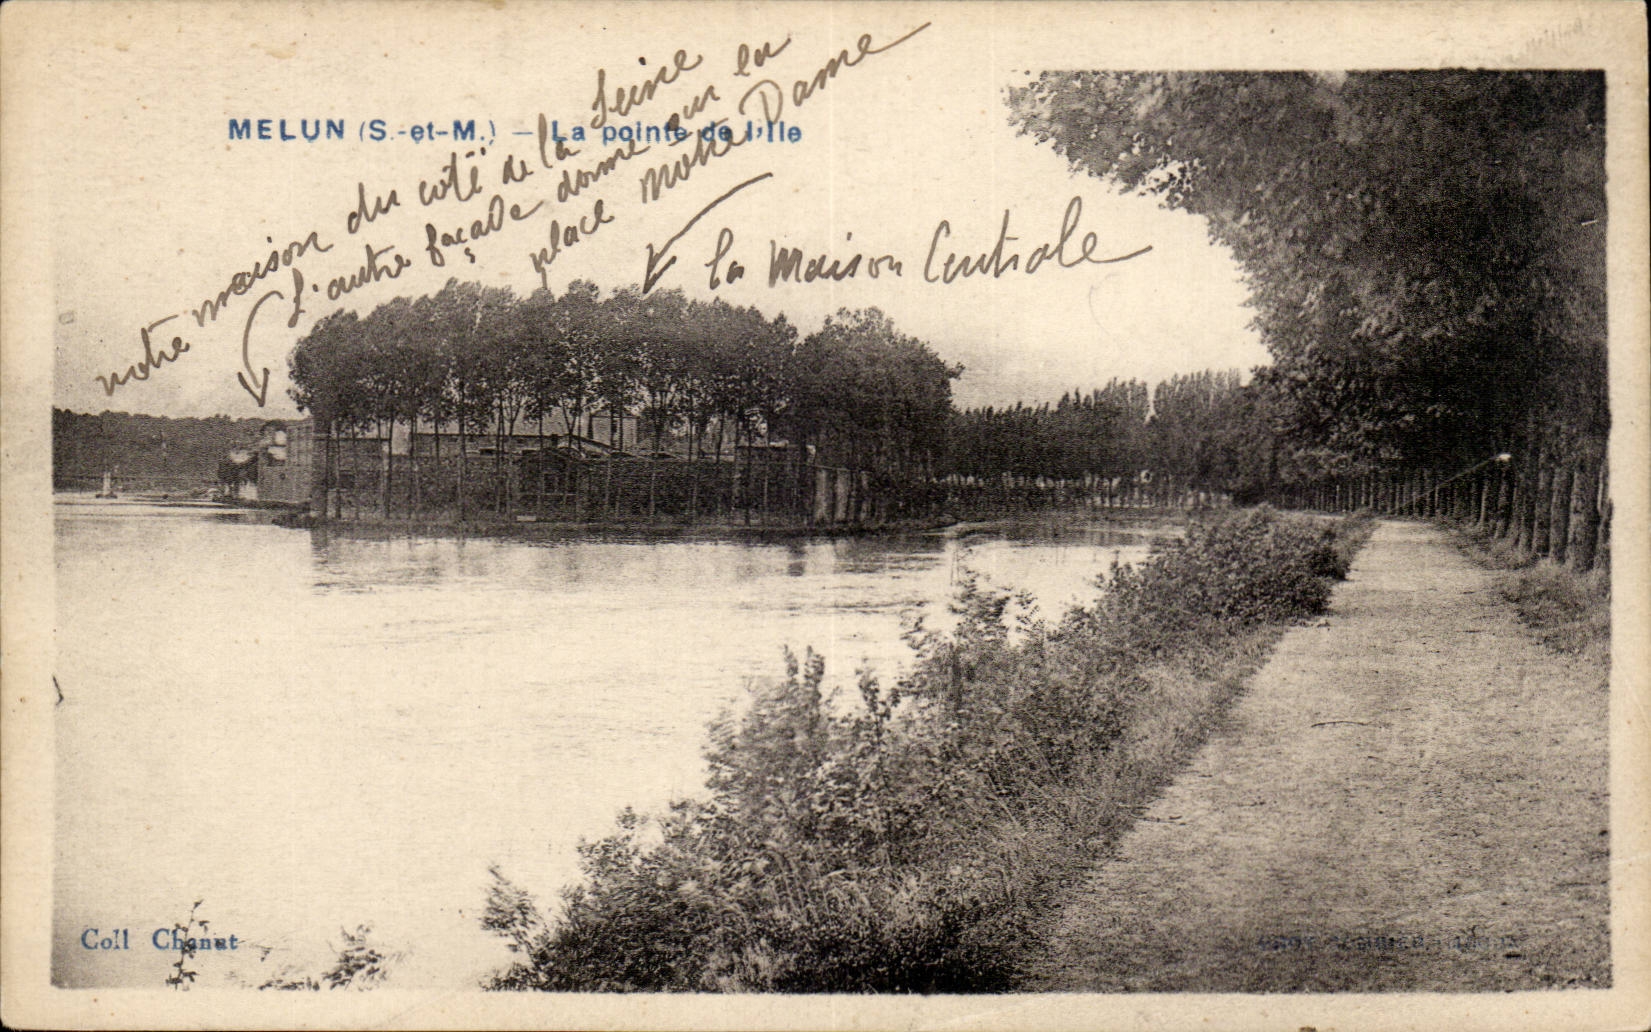 MELUN (S.-et-M.) — La pointe de l'Ile
notre maison du coté de la Seine
L'autre façade donne sur la
place Notre Dame
la Maison Centrale
Coll Chanut